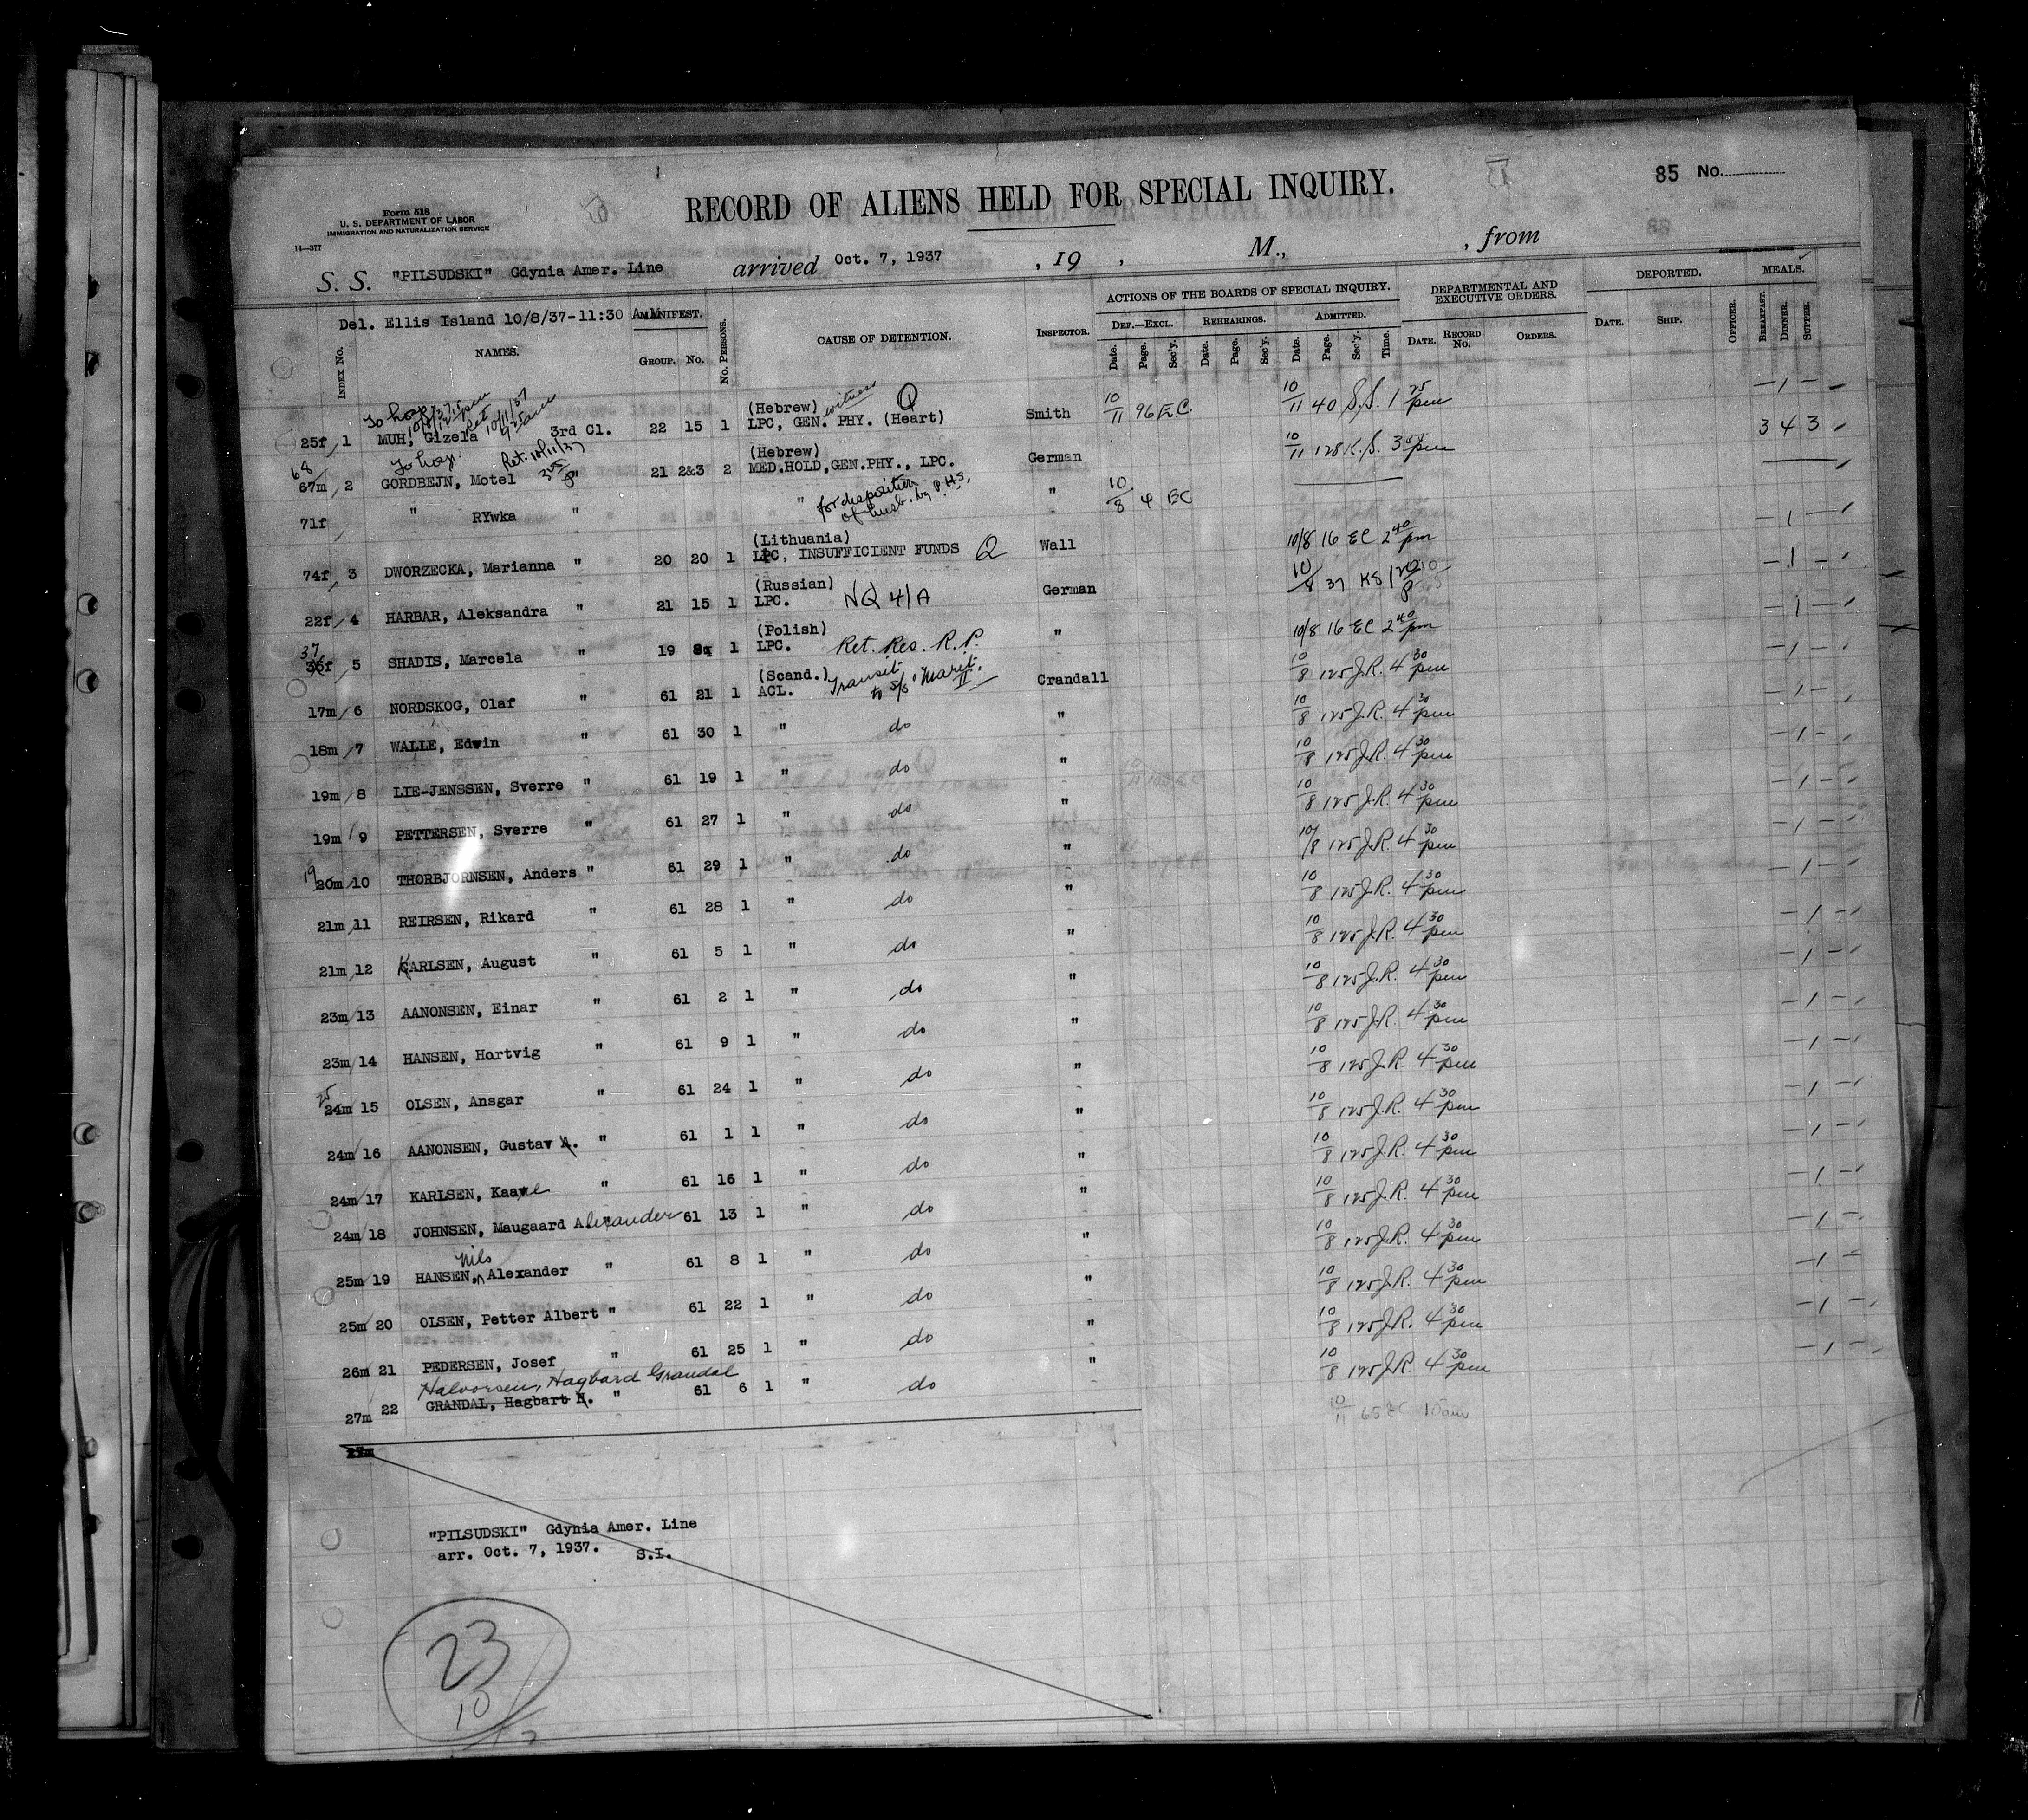 85 No.
RECORD OF ALIENS HELD FOR SPECIAL INQUIRY.
Form 518
U. S. DEPARTMENT OF LABOR
IMMIGRATION AND NATURALIZATION SERVICE
14—377
S. S. "PILSUDSKI" Gdynia Amer. Line arrived Oct. 7, 1937 , 19 , M., , from
Del. Ellis Island 10/8/37-11:30 A.M.
INDEX No. NAMES. MANIFEST. GROUP. No. No. PERSONS. CAUSE OF DETENTION. INSPECTOR. ACTIONS OF THE BOARDS OF SPECIAL INQUIRY. DEF.—EXCL. Date. Page. Sec'y. REHEARINGS. Date. Page. Sec'y. ADMITTED. Date. Page. Sec'y. Time. DEPARTMENTAL AND EXECUTIVE ORDERS. DATE. RECORD No. ORDERS. DEPORTED. DATE. SHIP. OFFICER. MEALS. BREAKFAST. DINNER. SUPPER.
To hosp. Ret. 10/11/37
(Hebrew) witness Q
25f 1 MUH, Gizela 3rd Cl. 22 15 1 LPC, GEN. PHY. (Heart) Smith 10/11 96 E.C. 10/11 40 S.S. 1 25 pm — 1 —
To hosp. Ret. 10/11/37
(Hebrew)
68 67m 2 GORDBEJN, Motel " 21 2&3 2 MED.HOLD,GEN.PHY., LPC. German 10/11 128 K.S. 3 pm 3 4 3
71f " RYwka " " for disposition of husb. by P.H.S. " 10/8 4 EC
(Lithuania)
74f 3 DWORZECKA, Marianna " 20 20 1 LPC, INSUFFICIENT FUNDS Q Wall 10/8 16 EC 2 40 pm — 1 —
(Russian)
22f 4 HARBAR, Aleksandra " 21 15 1 LPC. NQ 4/A German 10/8 37 KS — 1 —
(Polish)
37 36f 5 SHADIS, Marcela " 19 1 LPC. Ret. Res. R.P. " 10/8 16 EC 2 40 pm — 1 —
(Scand.)
17m 6 NORDSKOG, Olaf " 61 21 1 ACL. Transit to S/S "Marit II" Crandall 10/8 125 J.R. 4 30 pm — 1 —
18m 7 WALLE, Edwin " 61 30 1 " do " 10/8 125 J.R. 4 30 pm — 1 —
19m 8 LIE-JENSSEN, Sverre " 61 19 1 " do " 10/8 125 J.R. 4 30 pm — 1 —
19m 9 PETTERSEN, Sverre " 61 27 1 " do " 10/8 125 J.R. 4 30 pm — 1 —
19 20m 10 THORBJORNSEN, Anders " 61 29 1 " do " 10/8 125 J.R. 4 30 pm — 1 —
21m 11 REIRSEN, Rikard " 61 28 1 " do " 10/8 125 J.R. 4 30 pm — 1 —
21m 12 KARLSEN, August " 61 5 1 " do " 10/8 125 J.R. 4 30 pm — 1 —
23m 13 AANONSEN, Einar " 61 2 1 " do " 10/8 125 J.R. 4 30 pm — 1 —
23m 14 HANSEN, Hartvig " 61 9 1 " do " 10/8 125 J.R. 4 30 pm — 1 —
25 24m 15 OLSEN, Ansgar " 61 24 1 " do " 10/8 125 J.R. 4 30 pm — 1 —
24m 16 AANONSEN, Gustav A. " 61 1 1 " do " 10/8 125 J.R. 4 30 pm — 1 —
24m 17 KARLSEN, Kaare " 61 16 1 " do " 10/8 125 J.R. 4 30 pm — 1 —
24m 18 JOHNSEN, Maugaard Alexander 61 13 1 " do " 10/8 125 J.R. 4 30 pm — 1 —
25m 19 HANSEN, Nils Alexander " 61 8 1 " do " 10/8 125 J.R. 4 30 pm — 1 —
25m 20 OLSEN, Petter Albert " 61 22 1 " do " 10/8 125 J.R. 4 30 pm — 1 —
26m 21 PEDERSEN, Josef " 61 25 1 " do " 10/8 125 J.R. 4 30 pm — 1 —
Halvorsen, Hagbard Grandal
27m 22 GRANDAL, Hagbart H. " 61 6 1 " do " 10/8 125 J.R. 4 30 pm — 1 —
27m
"PILSUDSKI" Gdynia Amer. Line
arr. Oct. 7, 1937. S.I.
23
10